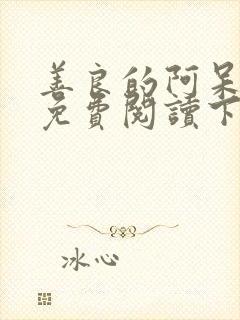 善良的阿呆
免費閱讀下
冰心